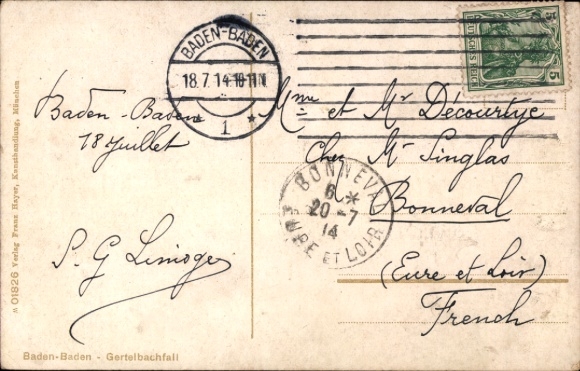 BADEN-BADEN
18.7.14.10-11N
* 1 *
5
DEUTSCHES REICH
5
Baden-Baden
18 juillet
S. G Limoge
Mme et Mr Décourtye
Chez Mr Singlas
Bonneval
(Eure et Loir)
French
BONNEVAL
6 *
20 -7
14
EURE ET LOIR
№ 01826 Verlag Franz Hayer, Kunsthandlung, München
Baden-Baden - Gertelbachfall